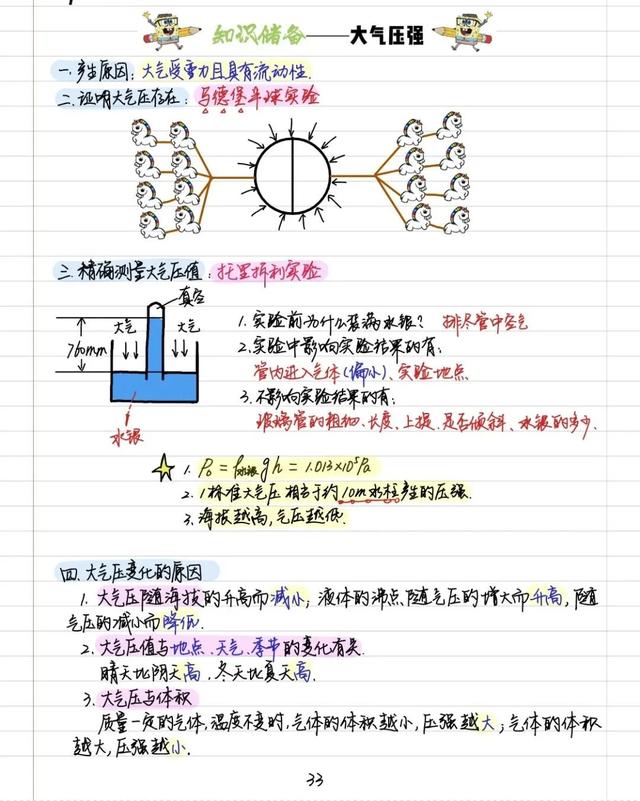 知识储备——大气压强
一.产生原因:大气受重力且具有流动性.
二.证明大气压存在:马德堡半球实验
三.精确测量大气压值:托里拆利实验
真空
大气 大气
760mm
水银
1.实验前为什么装满水银? 排尽管中空气
2.实验中影响实验结果的有:
管内进入气体(偏小)、实验地点
3.不影响实验结果的有:
玻璃管的粗细、长度、上提、是否倾斜、水银的多少.
1. P₀=ρ水银gh=1.013×10⁵Pa
2. 1标准大气压相当于约10m水柱产生的压强.
3.海拔越高,气压越低.
四.大气压变化的原因
1.大气压随海拔的升高而减小;液体的沸点随气压的增大而升高,随
气压的减小而降低.
2.大气压值与地点、天气、季节的变化有关.
晴天比阴天高,冬天比夏天高.
3.大气压与体积
质量一定的气体,温度不变时,气体的体积越小,压强越大;气体的体积
越大,压强越小.
33